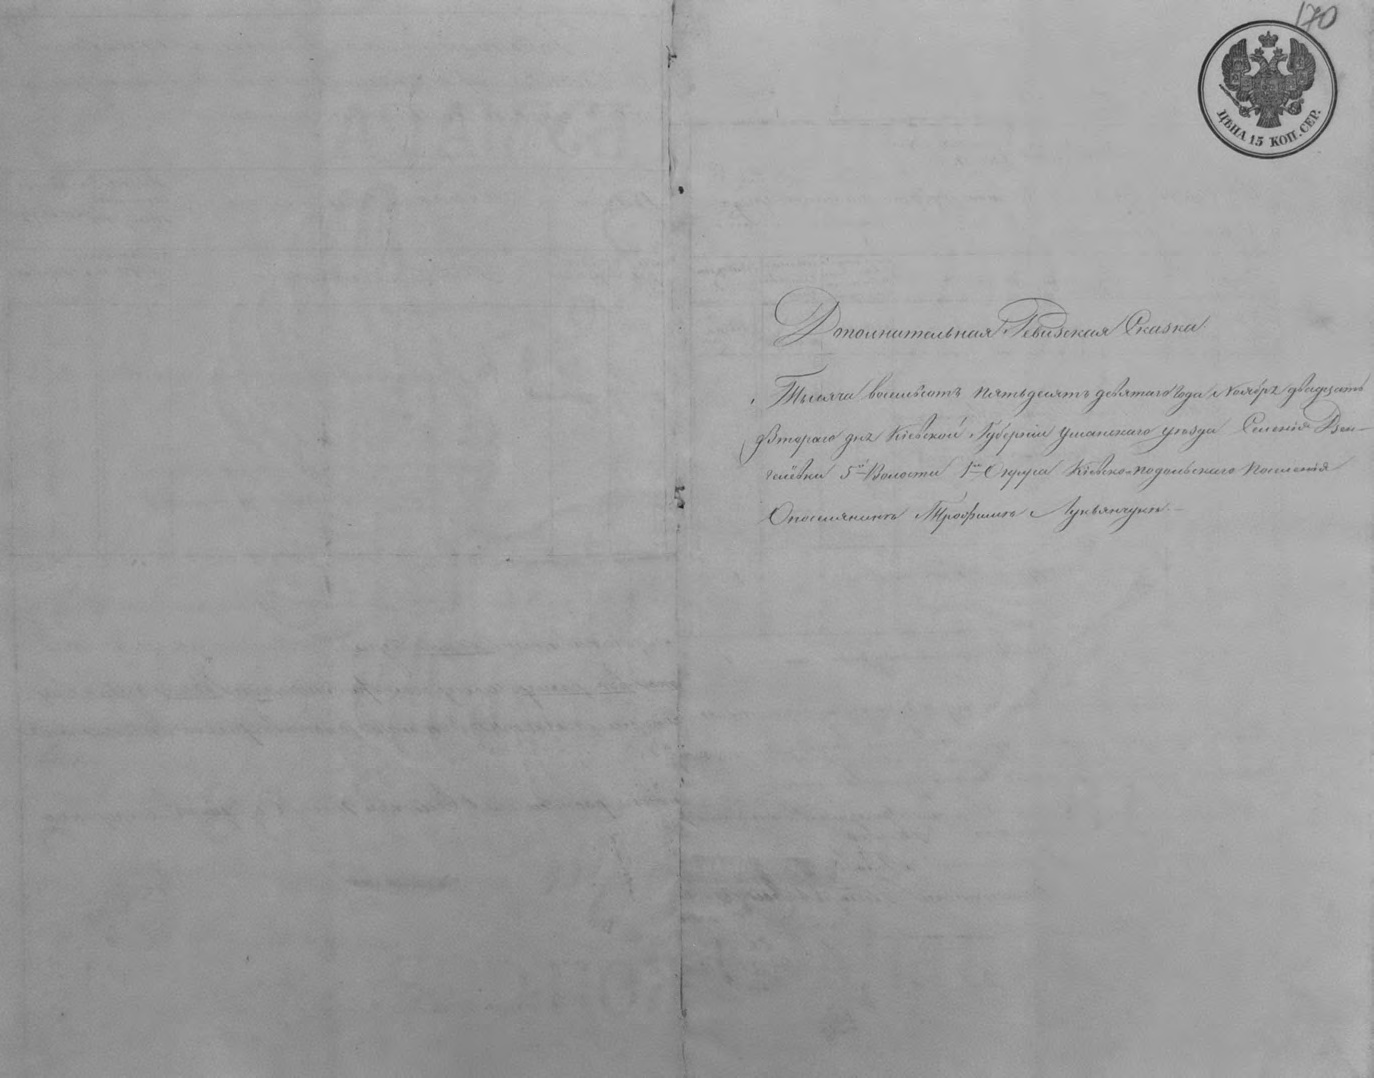 170
ЦѢНА 15 КОП. СЕР.
Дополнительная Ревизская Сказка
Тысяча восемьсотъ пятьдесятъ девятаго года Ноября двадцать
втораго дня Кіевской Губерніи Уманскаго уѣзда Селенія Вен-
5й Волости 1го Округа Кіевско-подольскаго поселенія
О поселянинѣ Трофимѣ Лукьянчукѣ